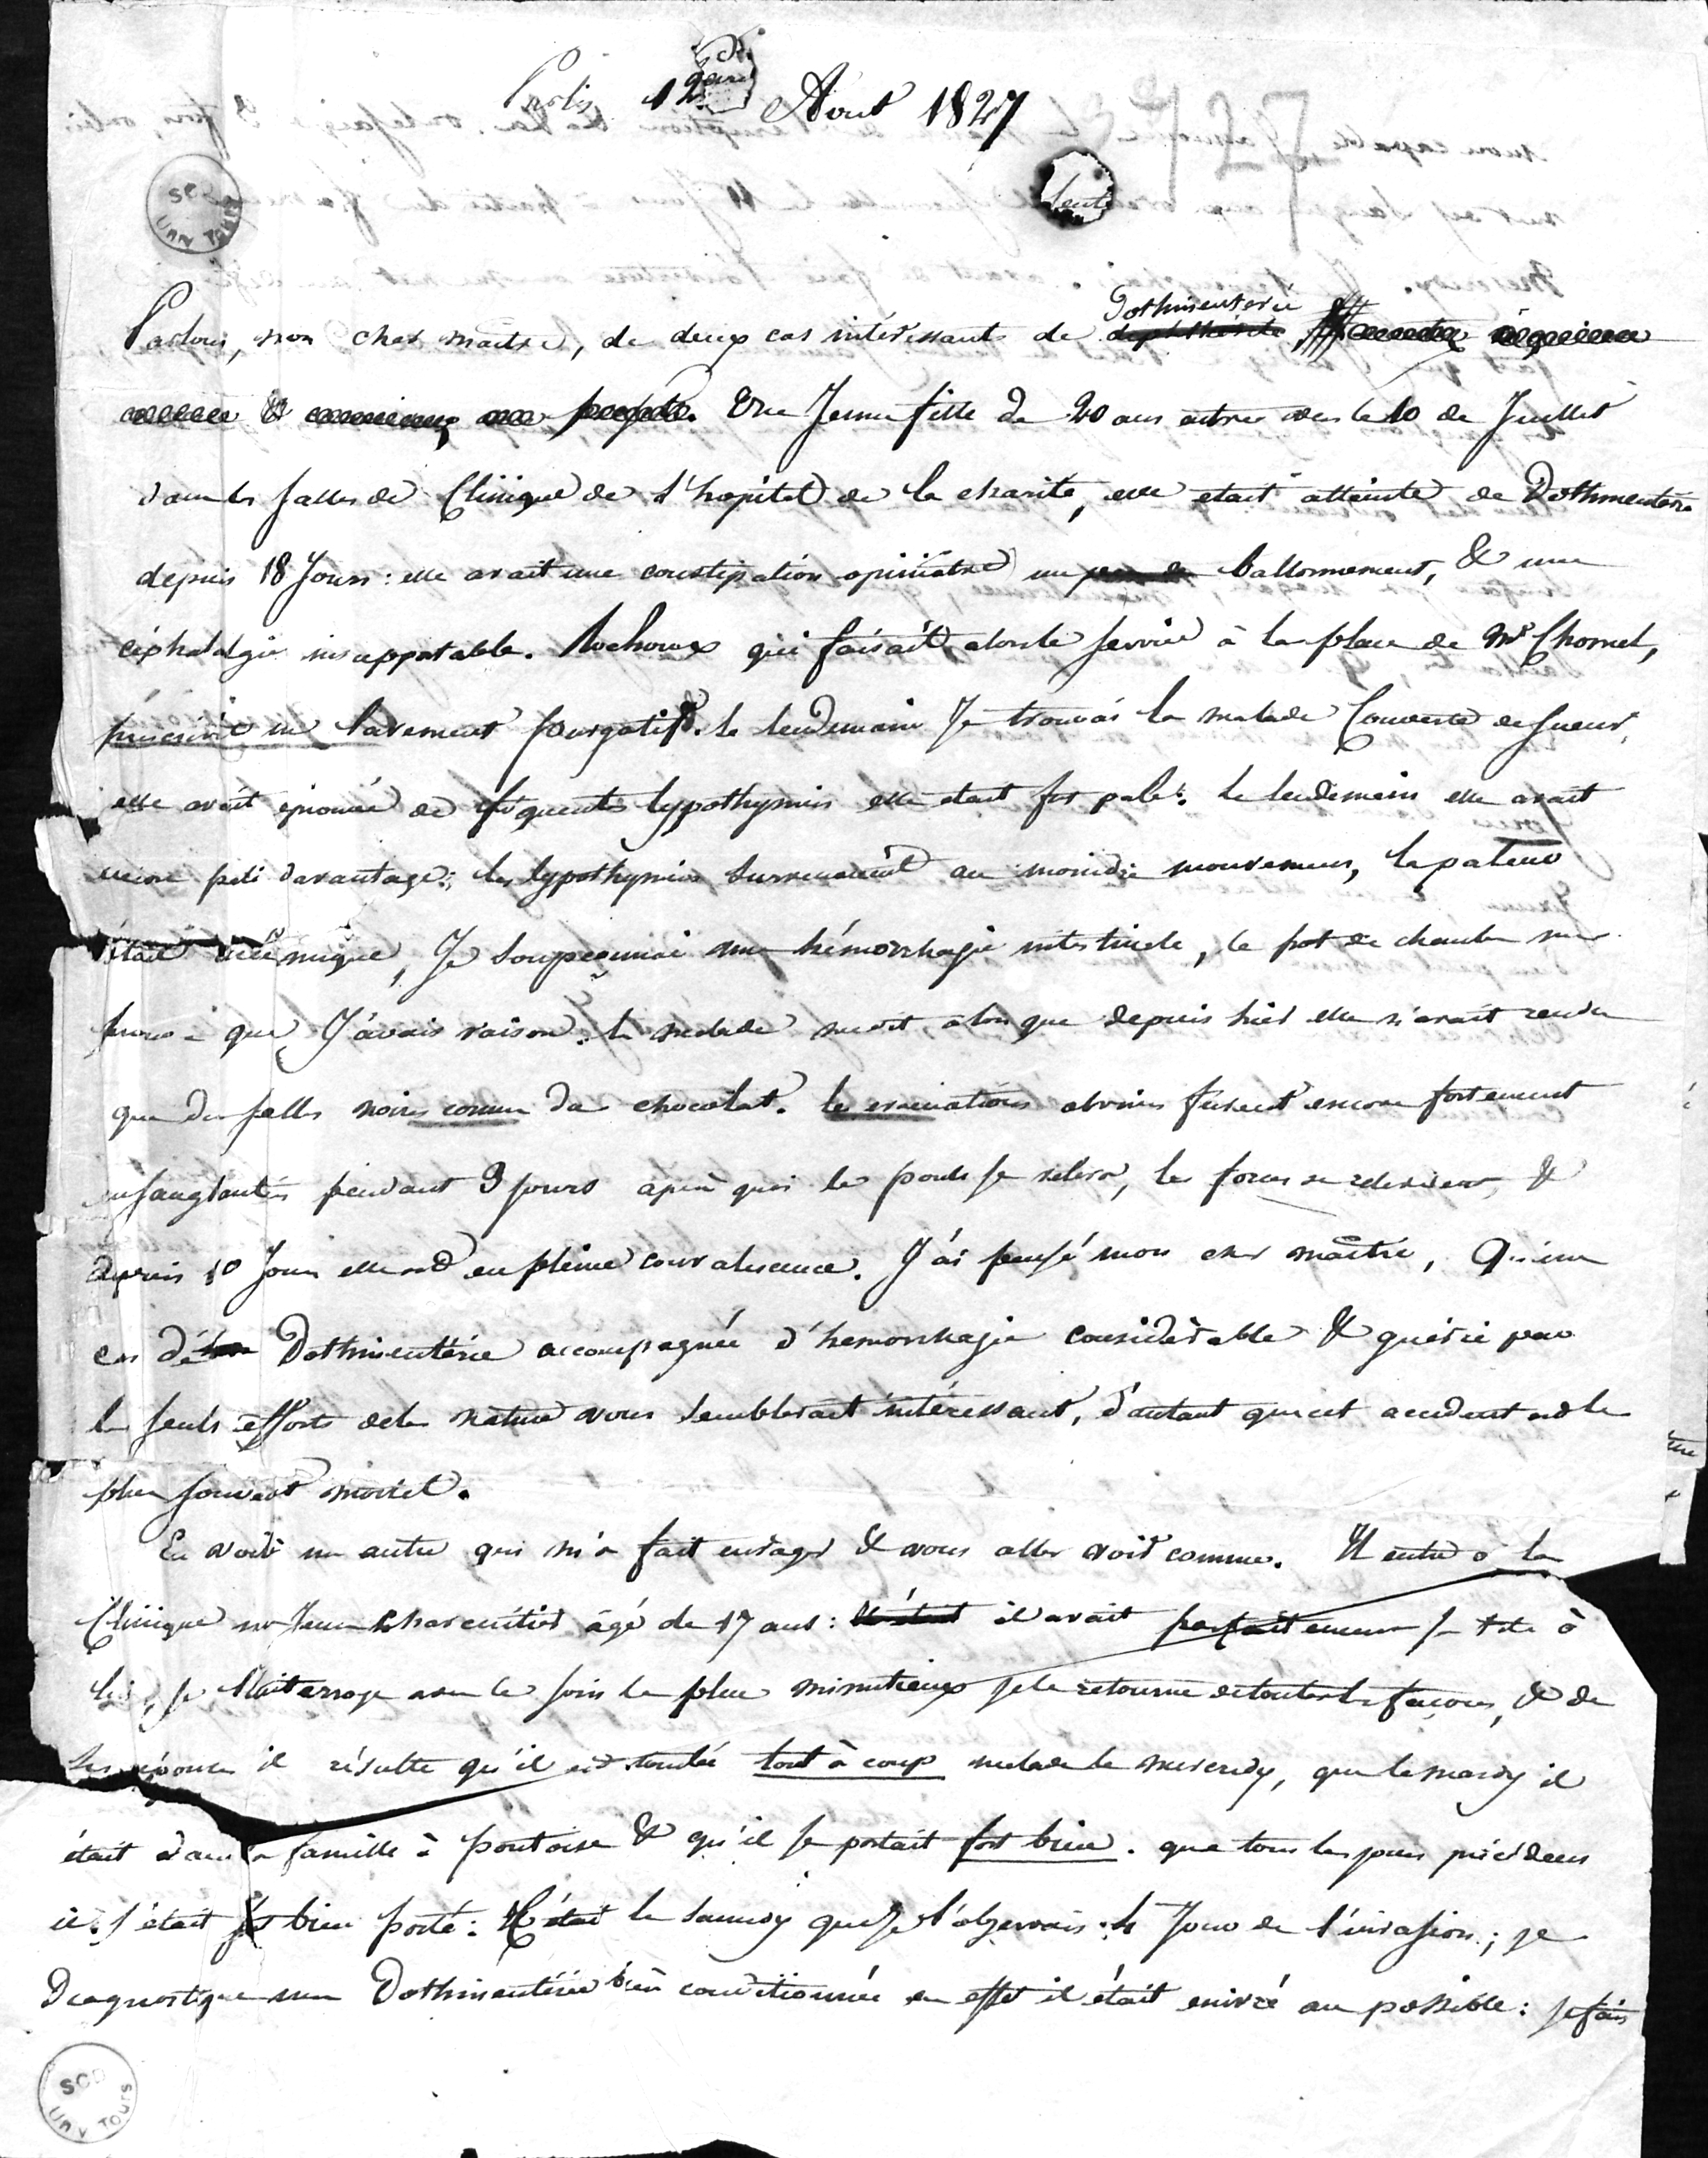 Paris 12 Aout 1827
SCD
UNIV TOURS
Parlons, mon cher maître, de deux cas intéressants de Dothinenterie
Une Jeune fille de 20 ans entra vers le 10 de Juillet
dans les salles de Clinique de l'hopital de la charité, elle etait atteinte de Dothinenterie
depuis 18 Jours: elle avait une constipation opiniatre un ballonnement, & une
céphalalgie insupportable. Rochoux qui faisait alors le service à la place de Mr Chomel,
prescrivit un lavement purgatif. le lendemain Je trouvai la malade Couverte de sueur,
elle avait éprouvé de fréquentes lypothymies elle etait fort pale. le lendemain elle avait
encore pali davantage; les lypothymies survenaient au moindre mouvement, la paleur
était Je soupçonnai une hémorrhagie intestinale, le pot de chambre me
prouva que J'avais raison. la malade me dit alors que depuis hier elle n'avait rendu
que des selles noires comme du chocolat. les évacuations alvines furent encore fortement
ensanglantées pendant 3 jours après quoi le pouls se releva, les forces se relevèrent, &
depuis 10 Jours elle est en pleine convalescence. J'ai pensé mon cher maître, Qu'un
cas de Dothinenterie accompagnée d'hemorrhagie considérable & guérie par
les seuls efforts de la nature vous semblerait intéressant, d'autant que cet accident est le
plus souvent mortel.
En voici un autre qui m'a fait enrager & vous allez voir comme. Il entre à la
Clinique un Jeune charcutier agé de 17 ans: il avait parfaitement sa tete à
lui, Je l'interroge avec le soin le plus minutieux je le retourne de toutes les façons, & de
ses réponses il résulte qu'il est tombé tout à coup malade le mercredy, que le mardy il
était dans sa famille à pontoise & qu'il se portait fort bien. que tous les jours précédens
il s'était bien porté: C'était le samedy que Je l'observais. 4e Jour de l'invasion; je
Diagnostique une Dothinentérie bien conditionnée en effet il était enivré au possible: je fais
SCD
UNIV TOURS